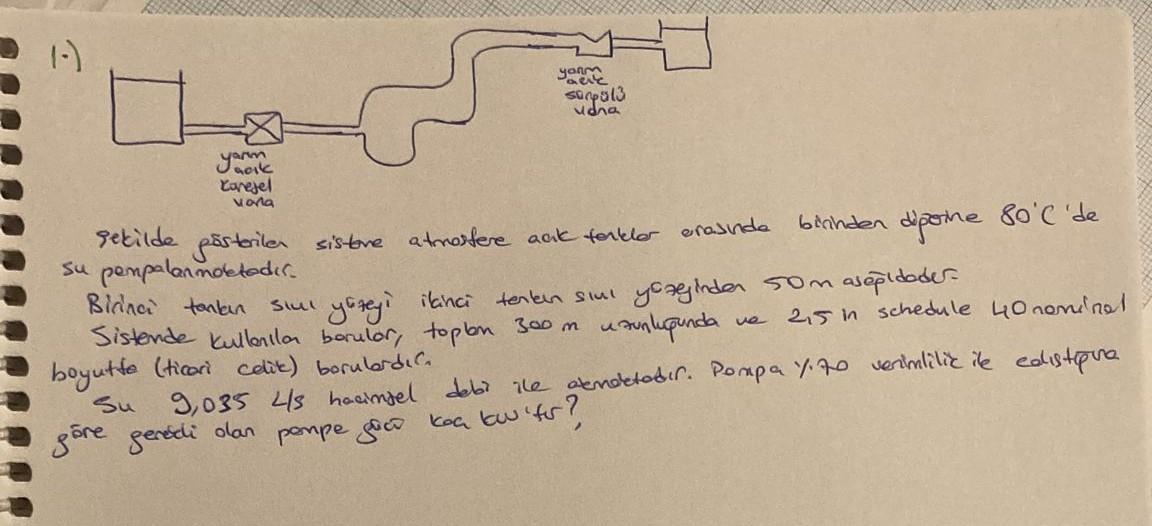 1-)
yarım
açık
küresel
vana
yarım
açık
sürgülü
vana
Şekilde gösterilen sisteme atmosfere açık tanklar arasında birinden diğerine 80°C'de
su pompalanmaktadır.
Birinci tankın sıvı yüzeyi ikinci tankın sıvı yüzeyinden 50m aşağıdadır.
Sistemde kullanılan borular, toplam 300 m uzunluğunda ve 2,5 in schedule 40 nominal
boyutta (ticari çelik) borulardır.
Su 9,035 L/s hacimsel debi ile akmaktadır. Pompa %70 verimlilik ile çalıştığına
göre gerekli olan pompa gücü kaç kW'tır?